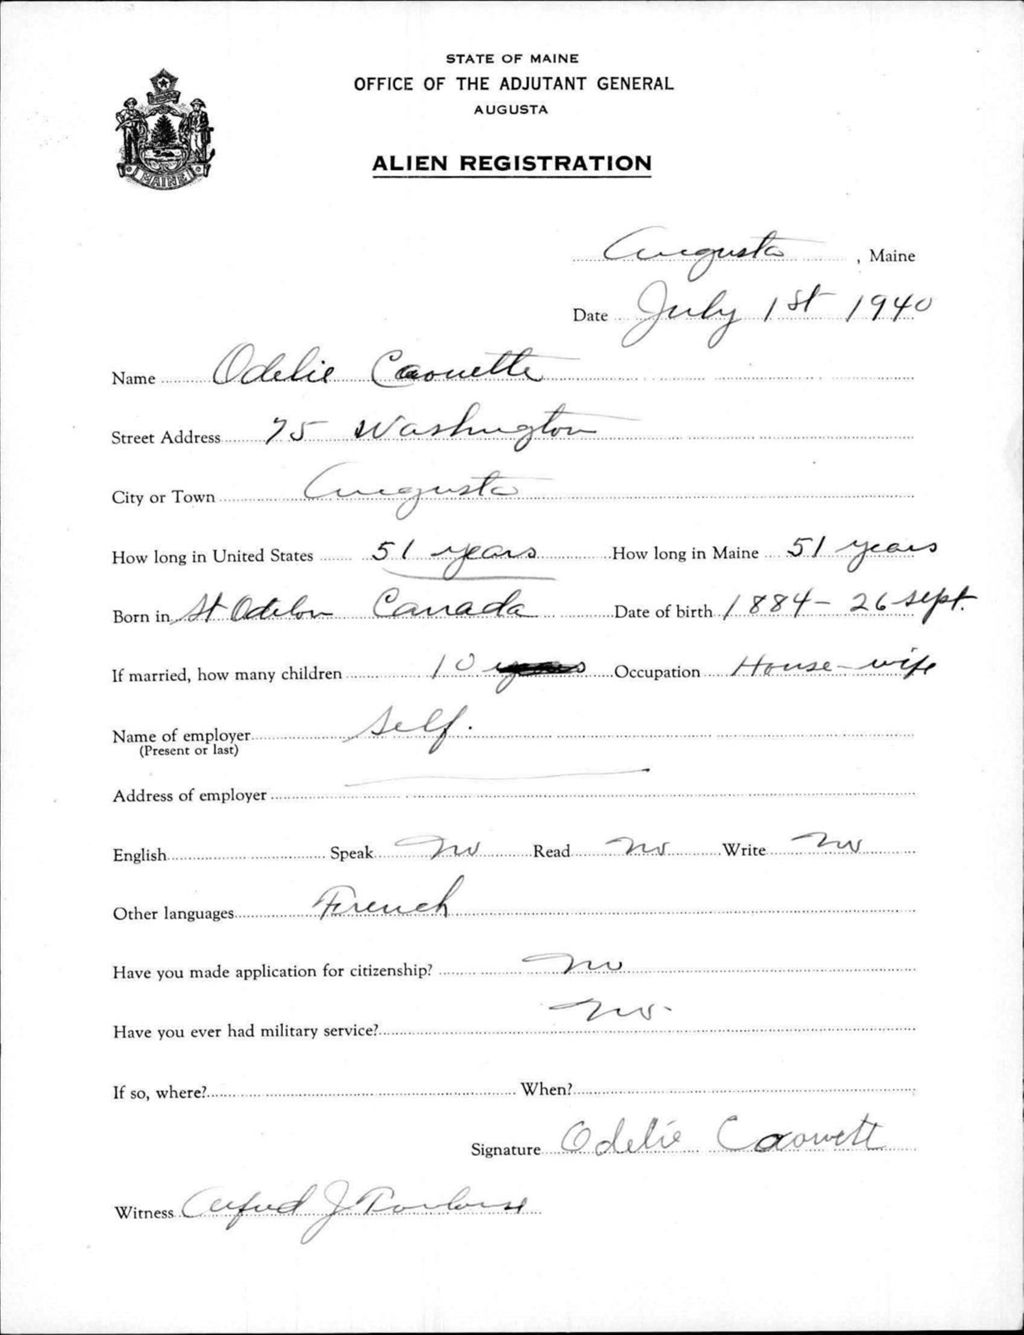 STATE OF MAINE
OFFICE OF THE ADJUTANT GENERAL
AUGUSTA
ALIEN REGISTRATION
MAINE
Augusta, Maine
Date July 1st 1940
Name Odelie Caouette
Street Address 75 Washington
City or Town Augusta
How long in United States 51 years How long in Maine 51 years
Born in St Odelon Canada Date of birth 1884 - 26 sept.
If married, how many children 10 Occupation House-wife
Name of employer self.
(Present or last)
Address of employer
English Speak no Read no Write no
Other languages French
Have you made application for citizenship? no
Have you ever had military service? no.
If so, where? When?
Signature Odelie Caouett
Witness Alfred J